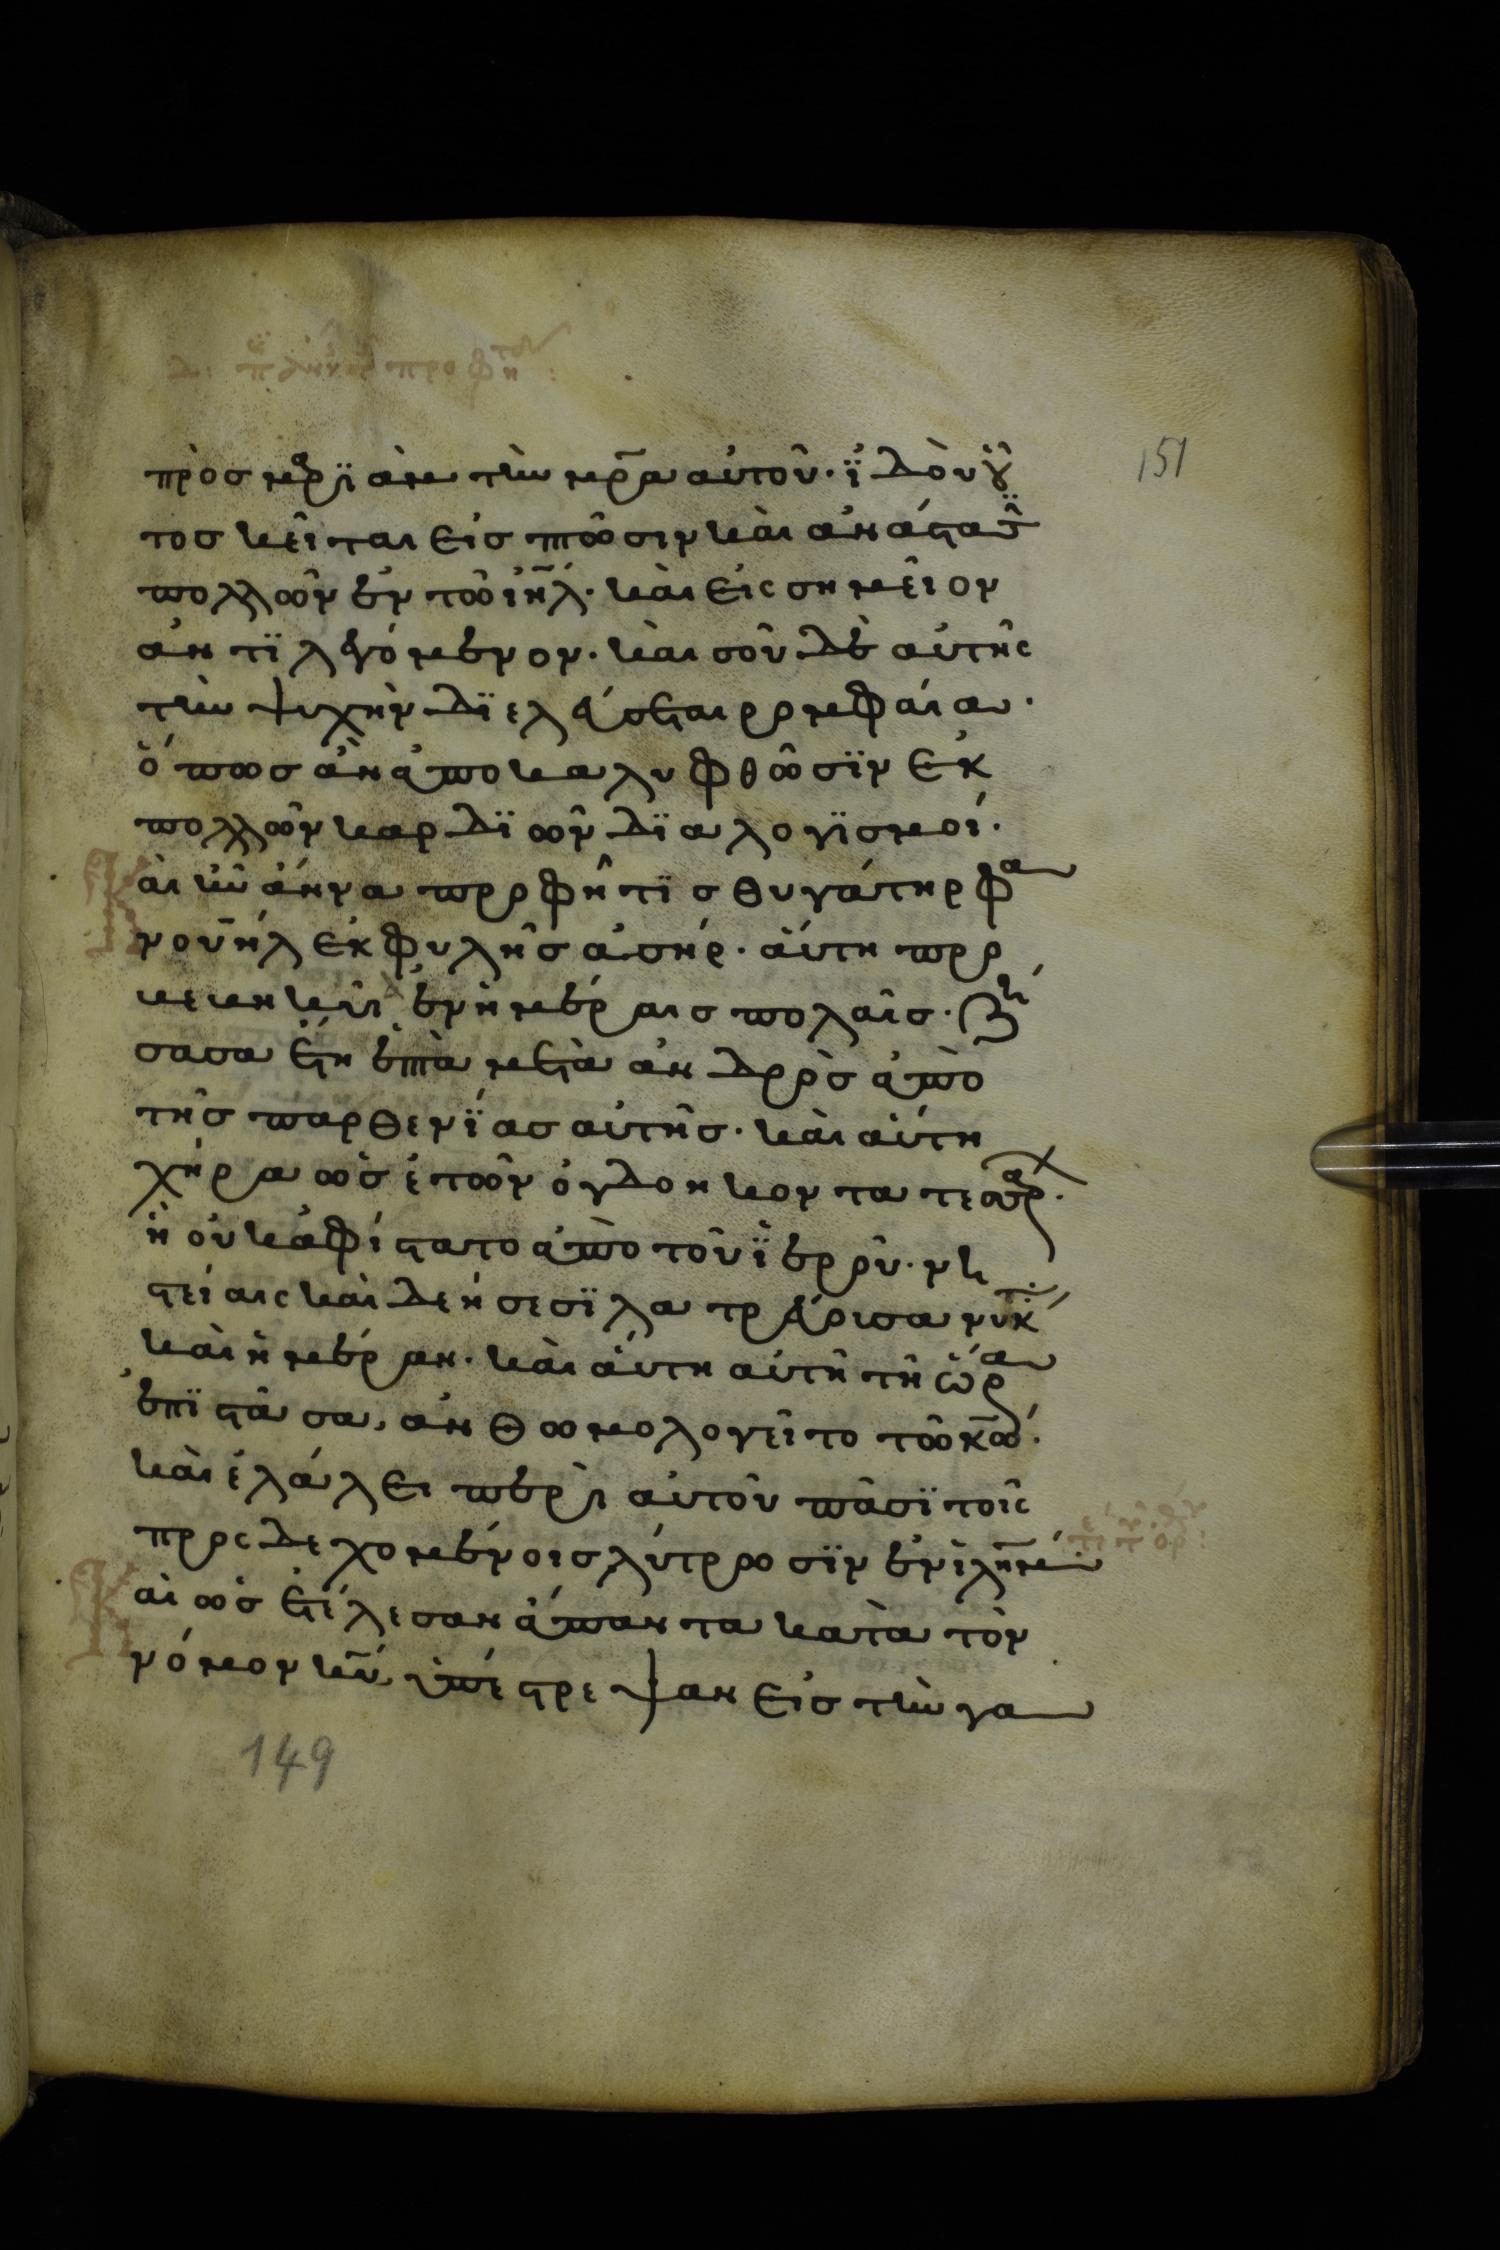 151
πρὸσ μαρϊὰμ τὴν μρ̅α αὐτοῦ· ἰδοὺ οὗ
τοσ κεῖται εἰσ πτῶσιν καὶ ἀνάστασϊ
πολλῶν ἐν τῶ ἰη̅λ· καὶ εἰσ σημεῖον
ἀντϊλεγόμενον· καὶ σοῦ δὲ αὐτῆσ
τὴν ψυχὴν δϊελεύσεται ρομφαία·
ὅπωσ ἂν ἀποκαλυφθῶσϊν ἐκ
πολλῶν καρδϊῶν δϊαλογϊσμοί·
Καὶ ἦν ἄννα προφῆτϊσ θυγάτηρ φα
νουὴλ ἐκ φυλῆσ ἀσήρ· αὕτη προ
κεκηκυῖ ἐν ἡμέραισ πολαῖσ· ζή
σασα ἔτη ἑπτὰ μετὰ ἀνδρὸσ ἀπὸ
τῆσ παρθενϊασ αὐτῆσ· καὶ αὕτη
χήρα ὡσ ἐτῶν ὀγδοηκοντα τεσσάρ·
ἣ οὐκ ἀφίστατο ἀπὸ τοῦ ϊεροῦ· νη
στείαισ καὶ δεήσεσϊ λατρεύουσα νύκτ
καὶ ἡμέραν· καὶ αὕτη αὐτῆ τῆ ὥρα
ἐπϊστᾶσα, ἀνθωμολογεῖτο τῶ κ̅ω·
καὶ ἐλάλει περὶ αὐτοῦ πᾶσϊ τοῖσ
προσδεχομένοισ λύτρωσϊν ἐν ἰλη̅μ·
Καὶ ὡσ ἐτέλεσαν ἅπαντα κατὰ τὸν
νόμον κ̅υ, ὑπέστρεψαν εἰσ τὴν γα
149